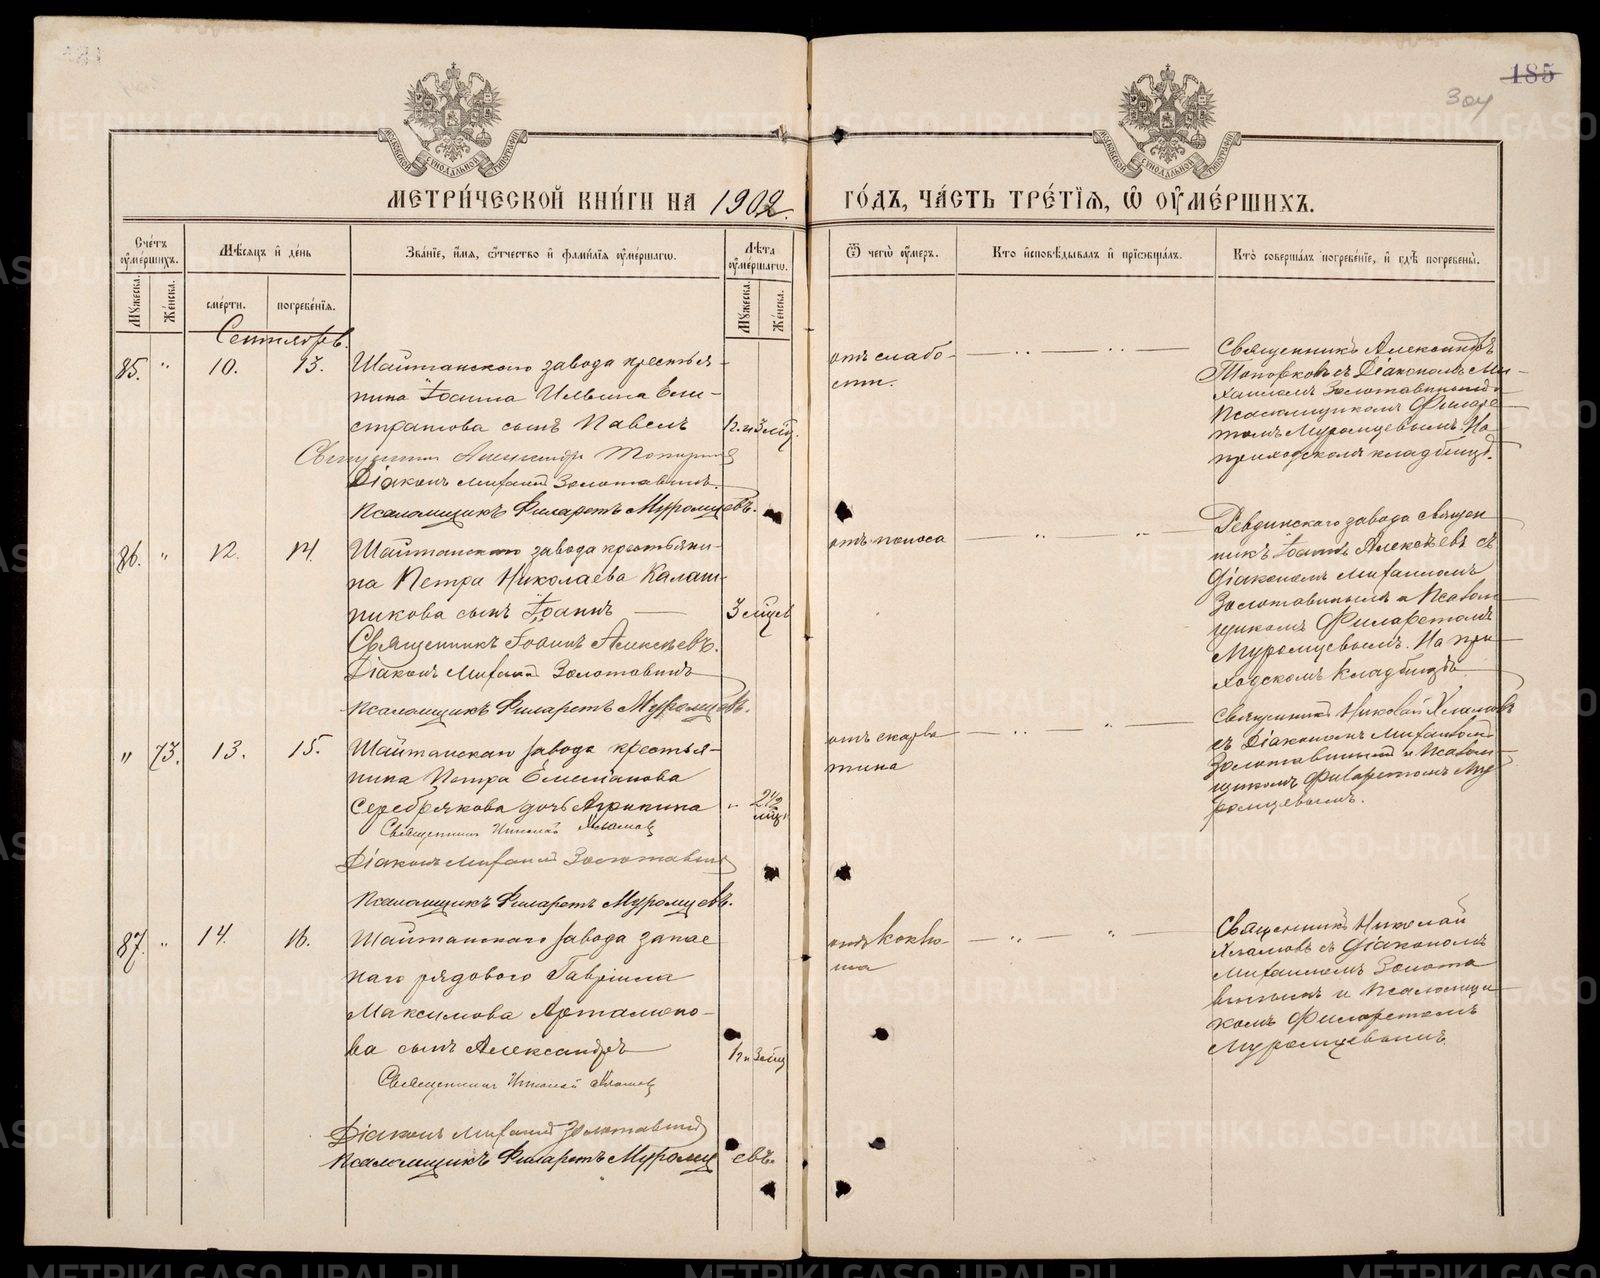 185
304
МЕТРИ́ЧЕСКОЙ КНИ́ГИ НА 1902. ГО́ДЪ, ЧА́СТЬ ТРЕ́ТІѦ, Ѿ ОУМЕ́РШИХЪ.
Сче́тъ оумершихъ.
Мꙋжеска.
Же́нска.
Мѣ́сяцъ и де́нь
сме́рти.
погребе́нїѧ.
Зва́нїе, и́мѧ, о́тчество и фами́лїѧ оуме́ршагѡ.
Лѣ́та оуме́ршагѡ.
Мꙋжеска.
Же́нска.
Ѿ чегѡ̀ оу́меръ.
Кто исповѣ́дывалъ и прїѡбща́лъ.
Кто̀ соверша́лъ погребе́нїе, и гдѣ̀ погребены̀.
Сентябрь.
85. " 10. 13. Шайтанскаго завода крестья-
нина Іоанна Ильина Ели-
стратова сынъ Павелъ 1 г. и 3 мѣц.
Священник Александр Топорков
Діаконъ Михаилъ Золотавинъ.
Псаломщикъ Филаретъ Муромцевъ.
отъ слабо-
сти.
Священникъ Александръ
Топорковъ съ Діакономъ Ми-
хаиломъ Золотавинымъ и
Псаломщикомъ Филаре-
томъ Муромцевымъ. На
приходскомъ кладбищѣ.
86. " 12. 14. Шайтанскаго завода крестьяни-
на Петра Николаева Калаш-
никова сынъ Іоаннъ 3 мѣцев
Священникъ Іоаннъ Алексѣевъ.
Діаконъ Михаилъ Золотавинъ
Псаломщикъ Филаретъ Муромцевъ.
отъ поноса
Ревдинскаго завода священ
никъ Іоаннъ Алексѣевъ съ
Діакономъ Михаиломъ
Золотавинымъ и Псалом
щикомъ Филаретомъ
Муромцевымъ. На при-
ходскомъ кладбищѣ
" 73. 13. 15. Шайтанскаго завода крестья-
нина Петра Емельанова
Серебрякова дочь Агрипина " 2 1/2 мѣц.
Священник Николай Хламов
Діаконъ Михаилъ Золотавинъ
Псаломщикъ Филаретъ Муромцевъ.
отъ скарла
тина
Священникъ Николай Хламовъ
съ Діакономъ Михаиломъ
Золотавинымъ и Псалом-
щикомъ Филаретомъ Му-
ромцевымъ.
87. " 14. 16. Шайтанскаго завода запас
наго рядового Гавріила
Максимова Артамоно-
ва сынъ Александръ 1 г. и 3 мѣц
Священник Николай Хламов
Діаконъ Михаилъ Золотавинъ
Псаломщикъ Филаретъ Муромцевъ.
отъ коклю-
ша
Священникъ Николай
Хламовъ съ Діакономъ
Михаиломъ Золота
винымъ и Псаломщи
комъ Филаретомъ
Муромцевымъ.